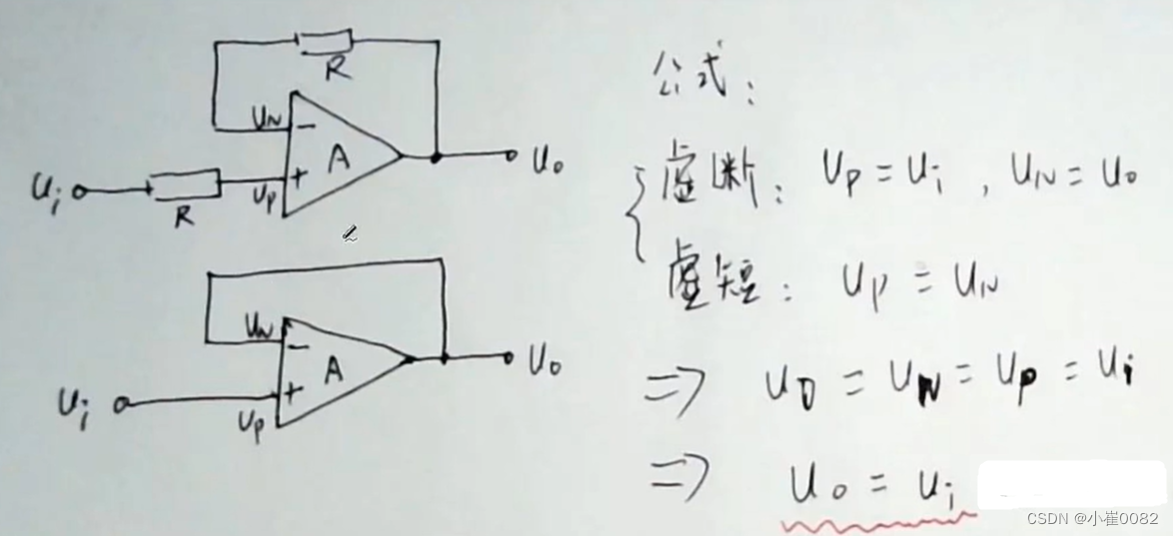 R
U_N
A
U_i
R
U_P
U_o
U_N
A
U_i
U_P
U_o
公式：
虚断：U_P = U_i , U_N = U_o
虚短：U_P = U_N
=> U_O = U_N = U_P = U_i
=> U_o = U_i
CSDN @小崔0082